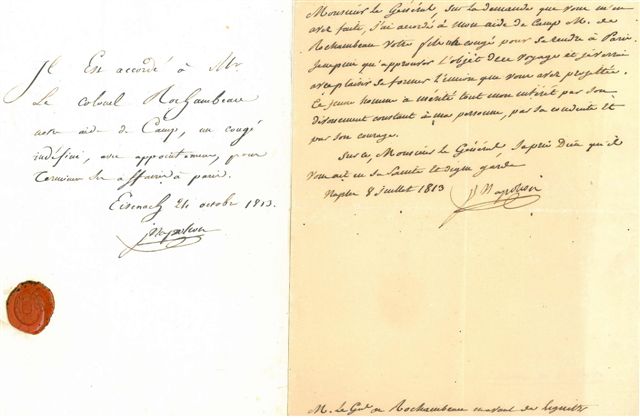 Il Est accordé à Mr
Le colonel Rochambeau
notre aide de Camp, un congé
indéfini, avec appointemens, pour
Terminer Ses affaires à paris.
Eisenach 24 octobre 1813.
Monsieur le Général, sur la demande que vous m'en
avez faite, J'ai accordé à mon aide de Camp M. de
Rochambeau votre fils un congé pour se rendre à Paris.
Je ne puis qu'approuver l'objet de ce voyage et je verrai
avec plaisir se former l'union que vous avez projettée.
Ce jeune homme a mérité tout mon intérêt par son
dévouement constant à ma personne, par sa conduite et
par son courage.
Sur ce, Monsieur le Général Je prie Dieu qu'il
vous ait en sa Sainte et digne garde
Naples 8 Juillet 1813
J Napoléon
M. Le Gal de Rochambeau en avant de